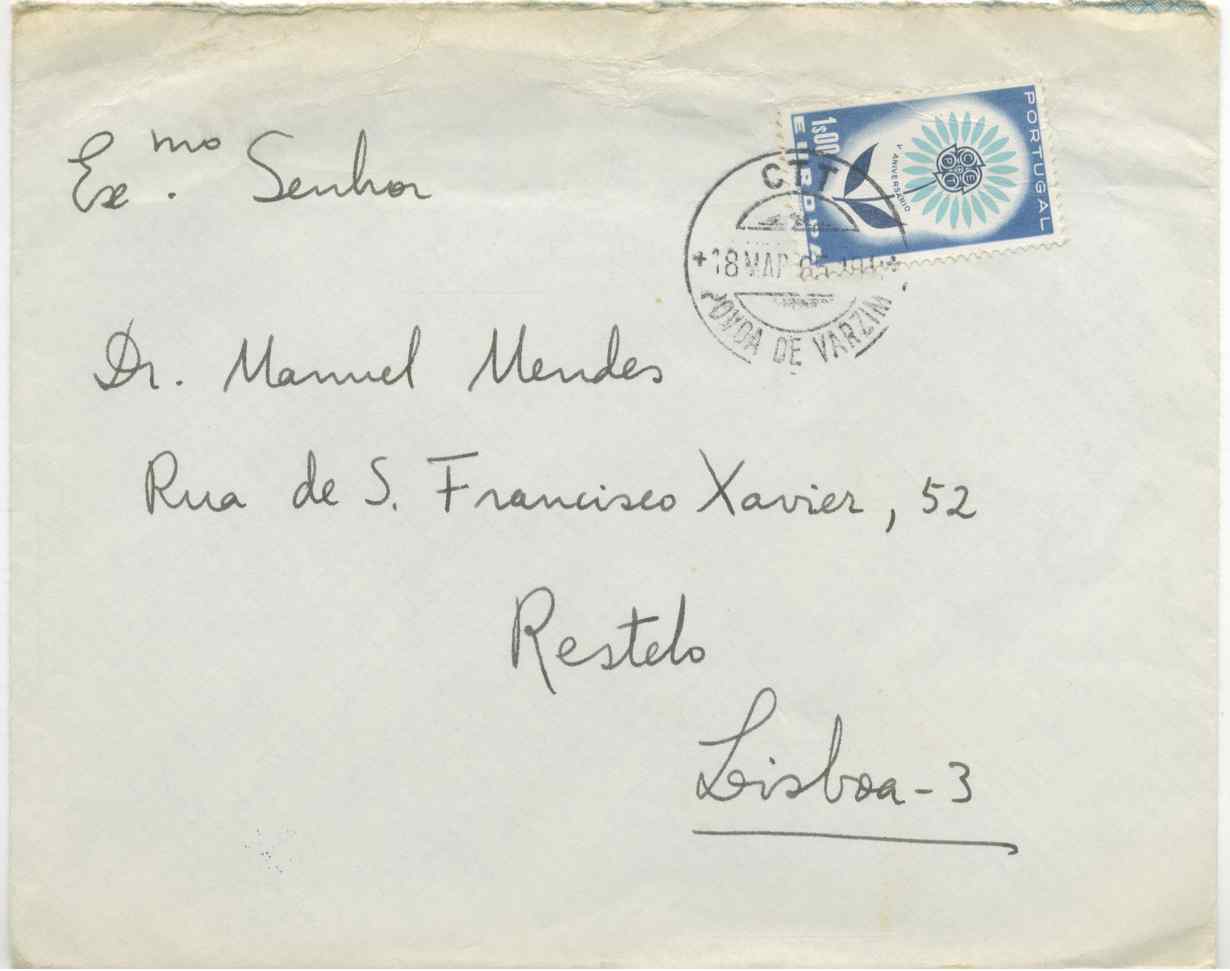 Exmo. Senhor
Dr. Manuel Mendes
Rua de S. Francisco Xavier, 52
Restelo
Lisboa - 3
PORTUGAL
CEPT
V ANIVERSÁRIO
1$00
EUROPA
CTT
18 MAR 65
POVOA DE VARZIM